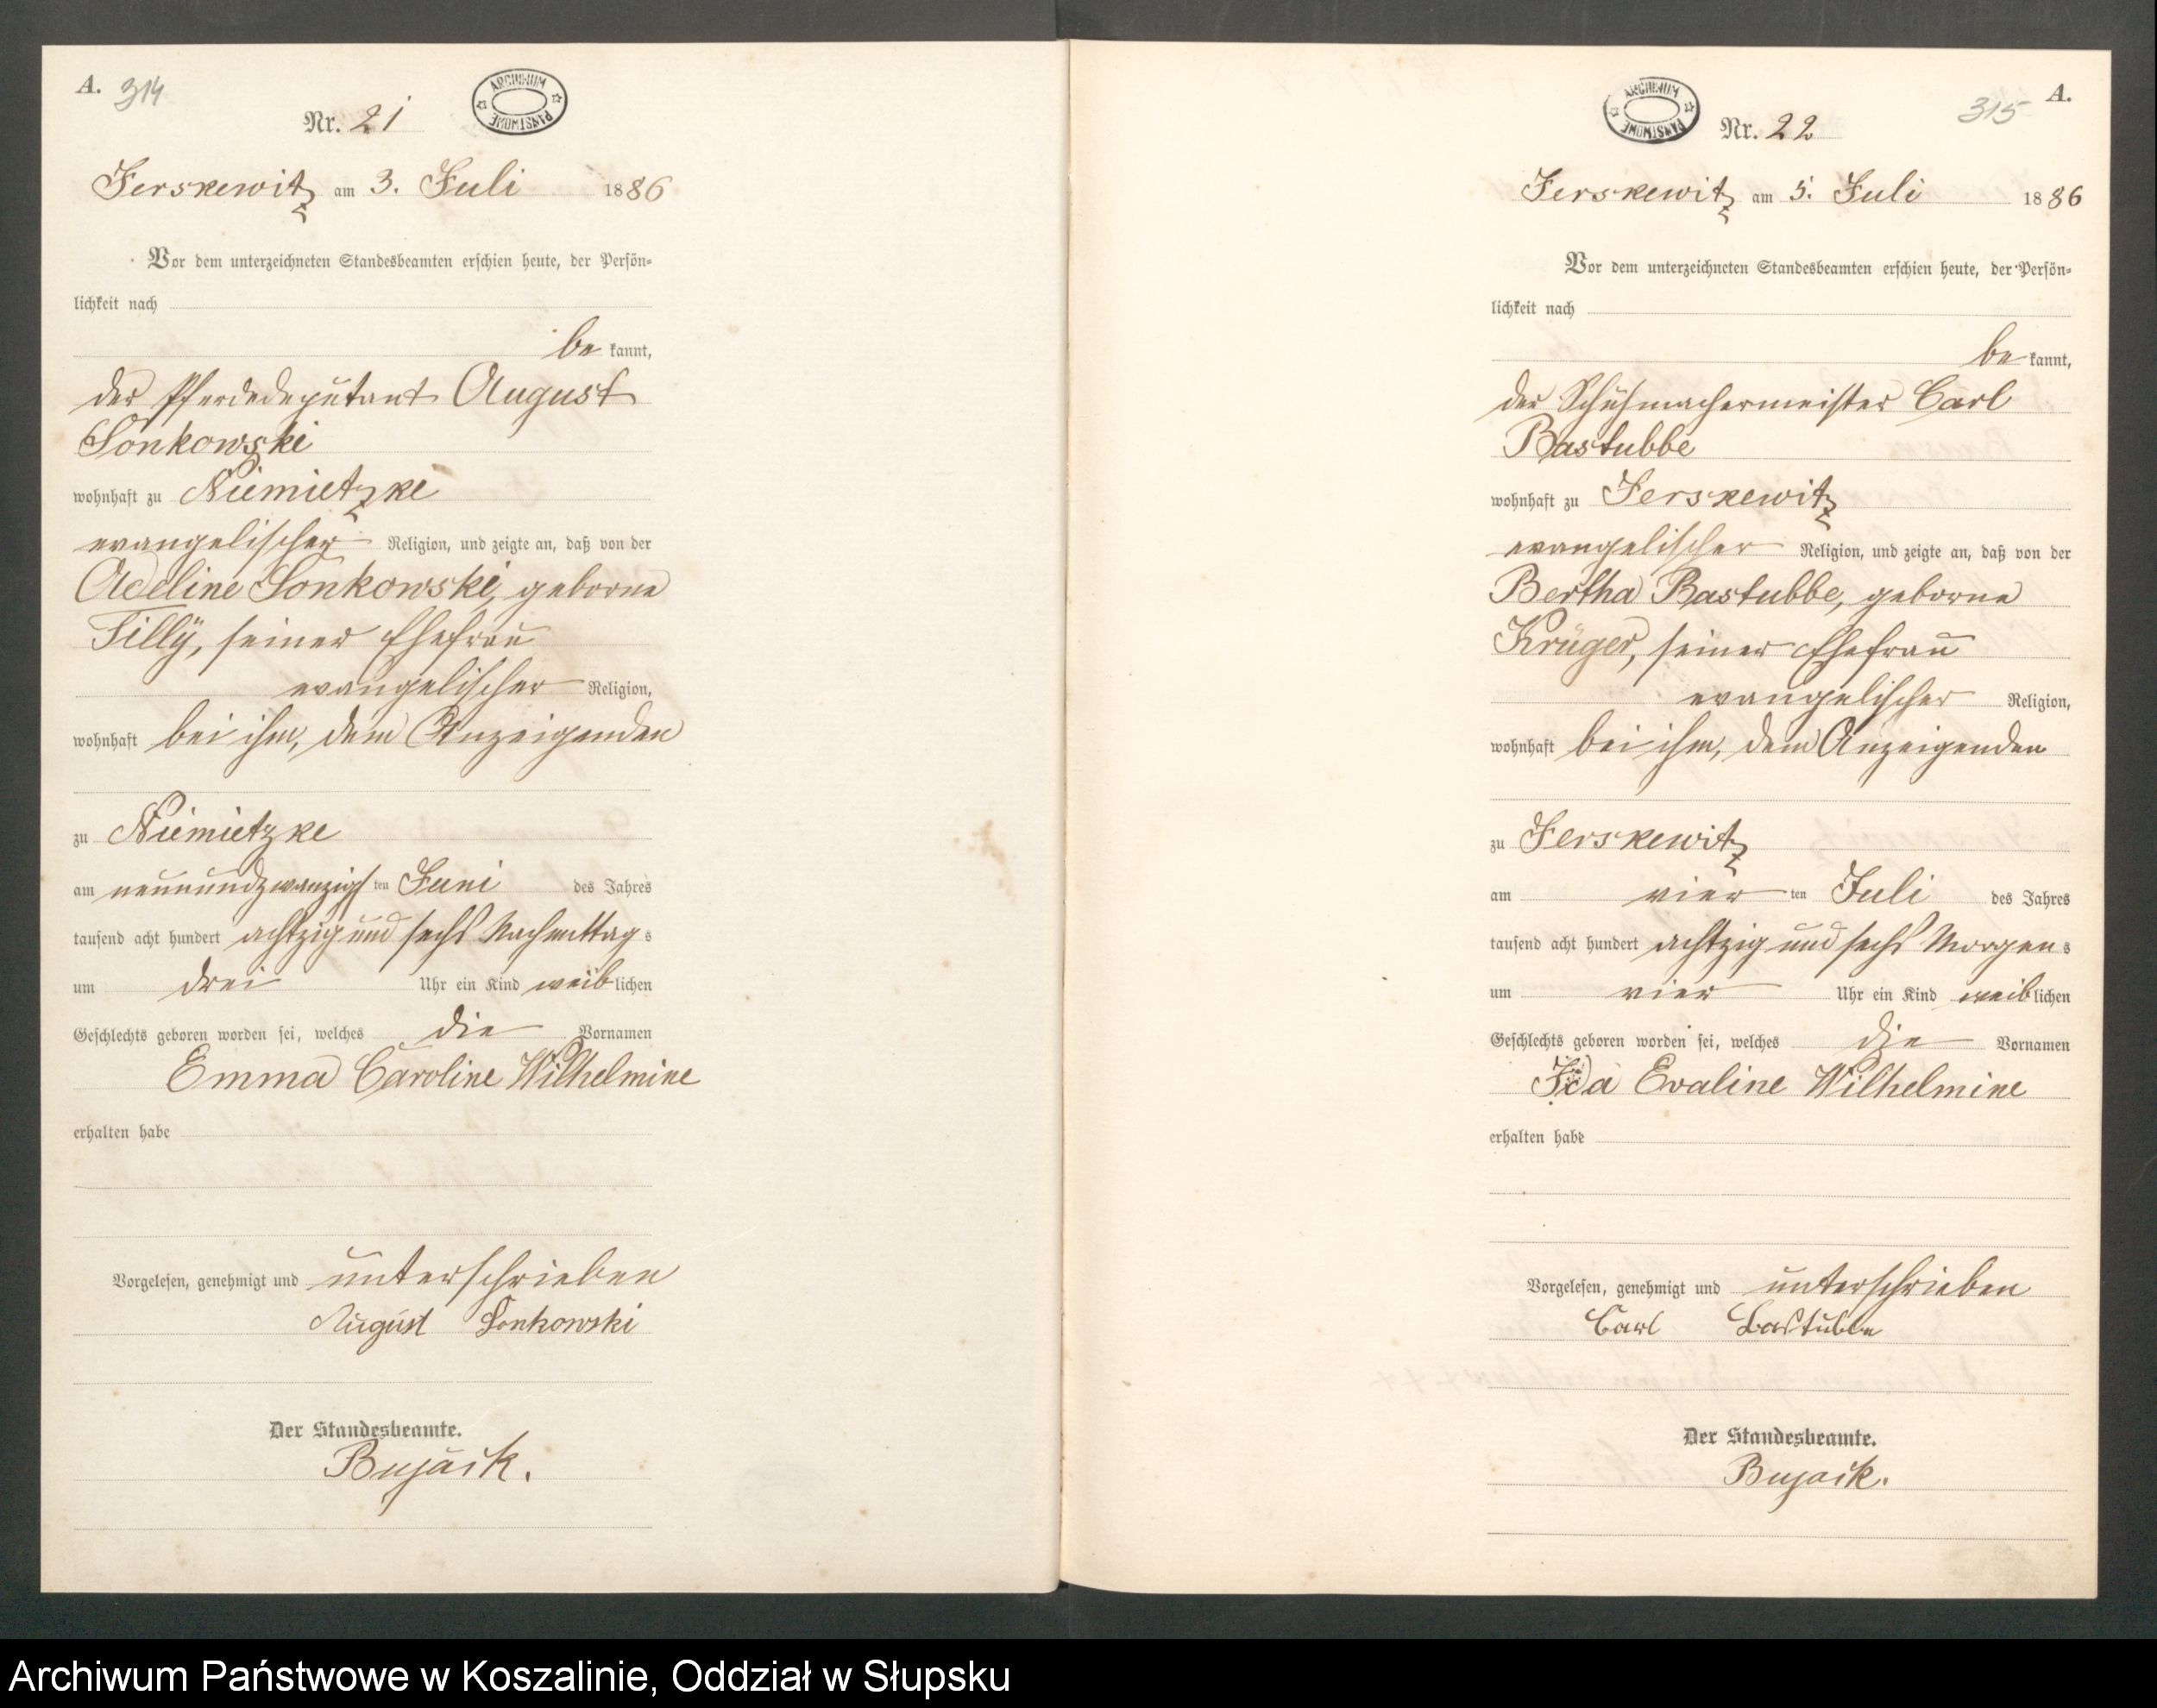 A. 314
ARCHIWUM PAŃSTWOWE
Nr. 21
Jerskewitz am 3. Juli 1886
Vor dem unterzeichneten Standesbeamten erschien heute, der Persön-
lichkeit nach
be kannt,
der Pferdedeputant August
Lonkowski
wohnhaft zu Niemietzke
evangelischer Religion, und zeigte an, daß von der
Adeline Lonkowski, geborne
Tilly, seiner Ehefrau
evangelischer Religion,
wohnhaft bei ihm, dem Anzeigenden
zu Niemietzke
am neunundzwanzigsten Juni des Jahres
tausend acht hundert achtzig und sechs Nachmittags
um drei Uhr ein Kind weiblichen
Geschlechts geboren worden sei, welches die Vornamen
Emma Caroline Wilhelmine
erhalten habe
Vorgelesen, genehmigt und unterschrieben
August Lonkowski
Der Standesbeamte.
Bujack.
315 A.
ARCHIWUM PAŃSTWOWE
Nr. 22
Jerskewitz am 5. Juli 1886
Vor dem unterzeichneten Standesbeamten erschien heute, der Persön-
lichkeit nach
be kannt,
der Schuhmachermeister Carl
Bastubbe
wohnhaft zu Jerskewitz
evangelischer Religion, und zeigte an, daß von der
Bertha Bastubbe, geborne
Krüger, seiner Ehefrau
evangelischer Religion,
wohnhaft bei ihm, dem Anzeigenden
zu Jerskewitz
am vier ten Juli des Jahres
tausend acht hundert achtzig und sechs Morgens
um vier Uhr ein Kind weiblichen
Geschlechts geboren worden sei, welches die Vornamen
Ida Evaline Wilhelmine
erhalten habe
Vorgelesen, genehmigt und unterschrieben
Carl Bastubbe
Der Standesbeamte.
Bujack.
Archiwum Państwowe w Koszalinie, Oddział w Słupsku